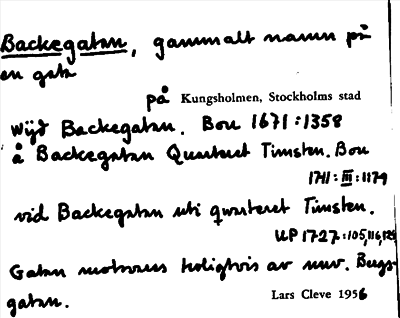 Backegatan, gammalt namn på
en gata
på Kungsholmen, Stockholms stad
Wijd Backegatan. Bou 1671:1358
å Backegatan Quarteret Timsten. Bou
1711:III:1179
vid Backegatan uti qwarteret Timsten.
UP 1727:105,116,125
Gatan motsvaras troligtvis av nuv. Bergs-
gatan.
Lars Cleve 1956